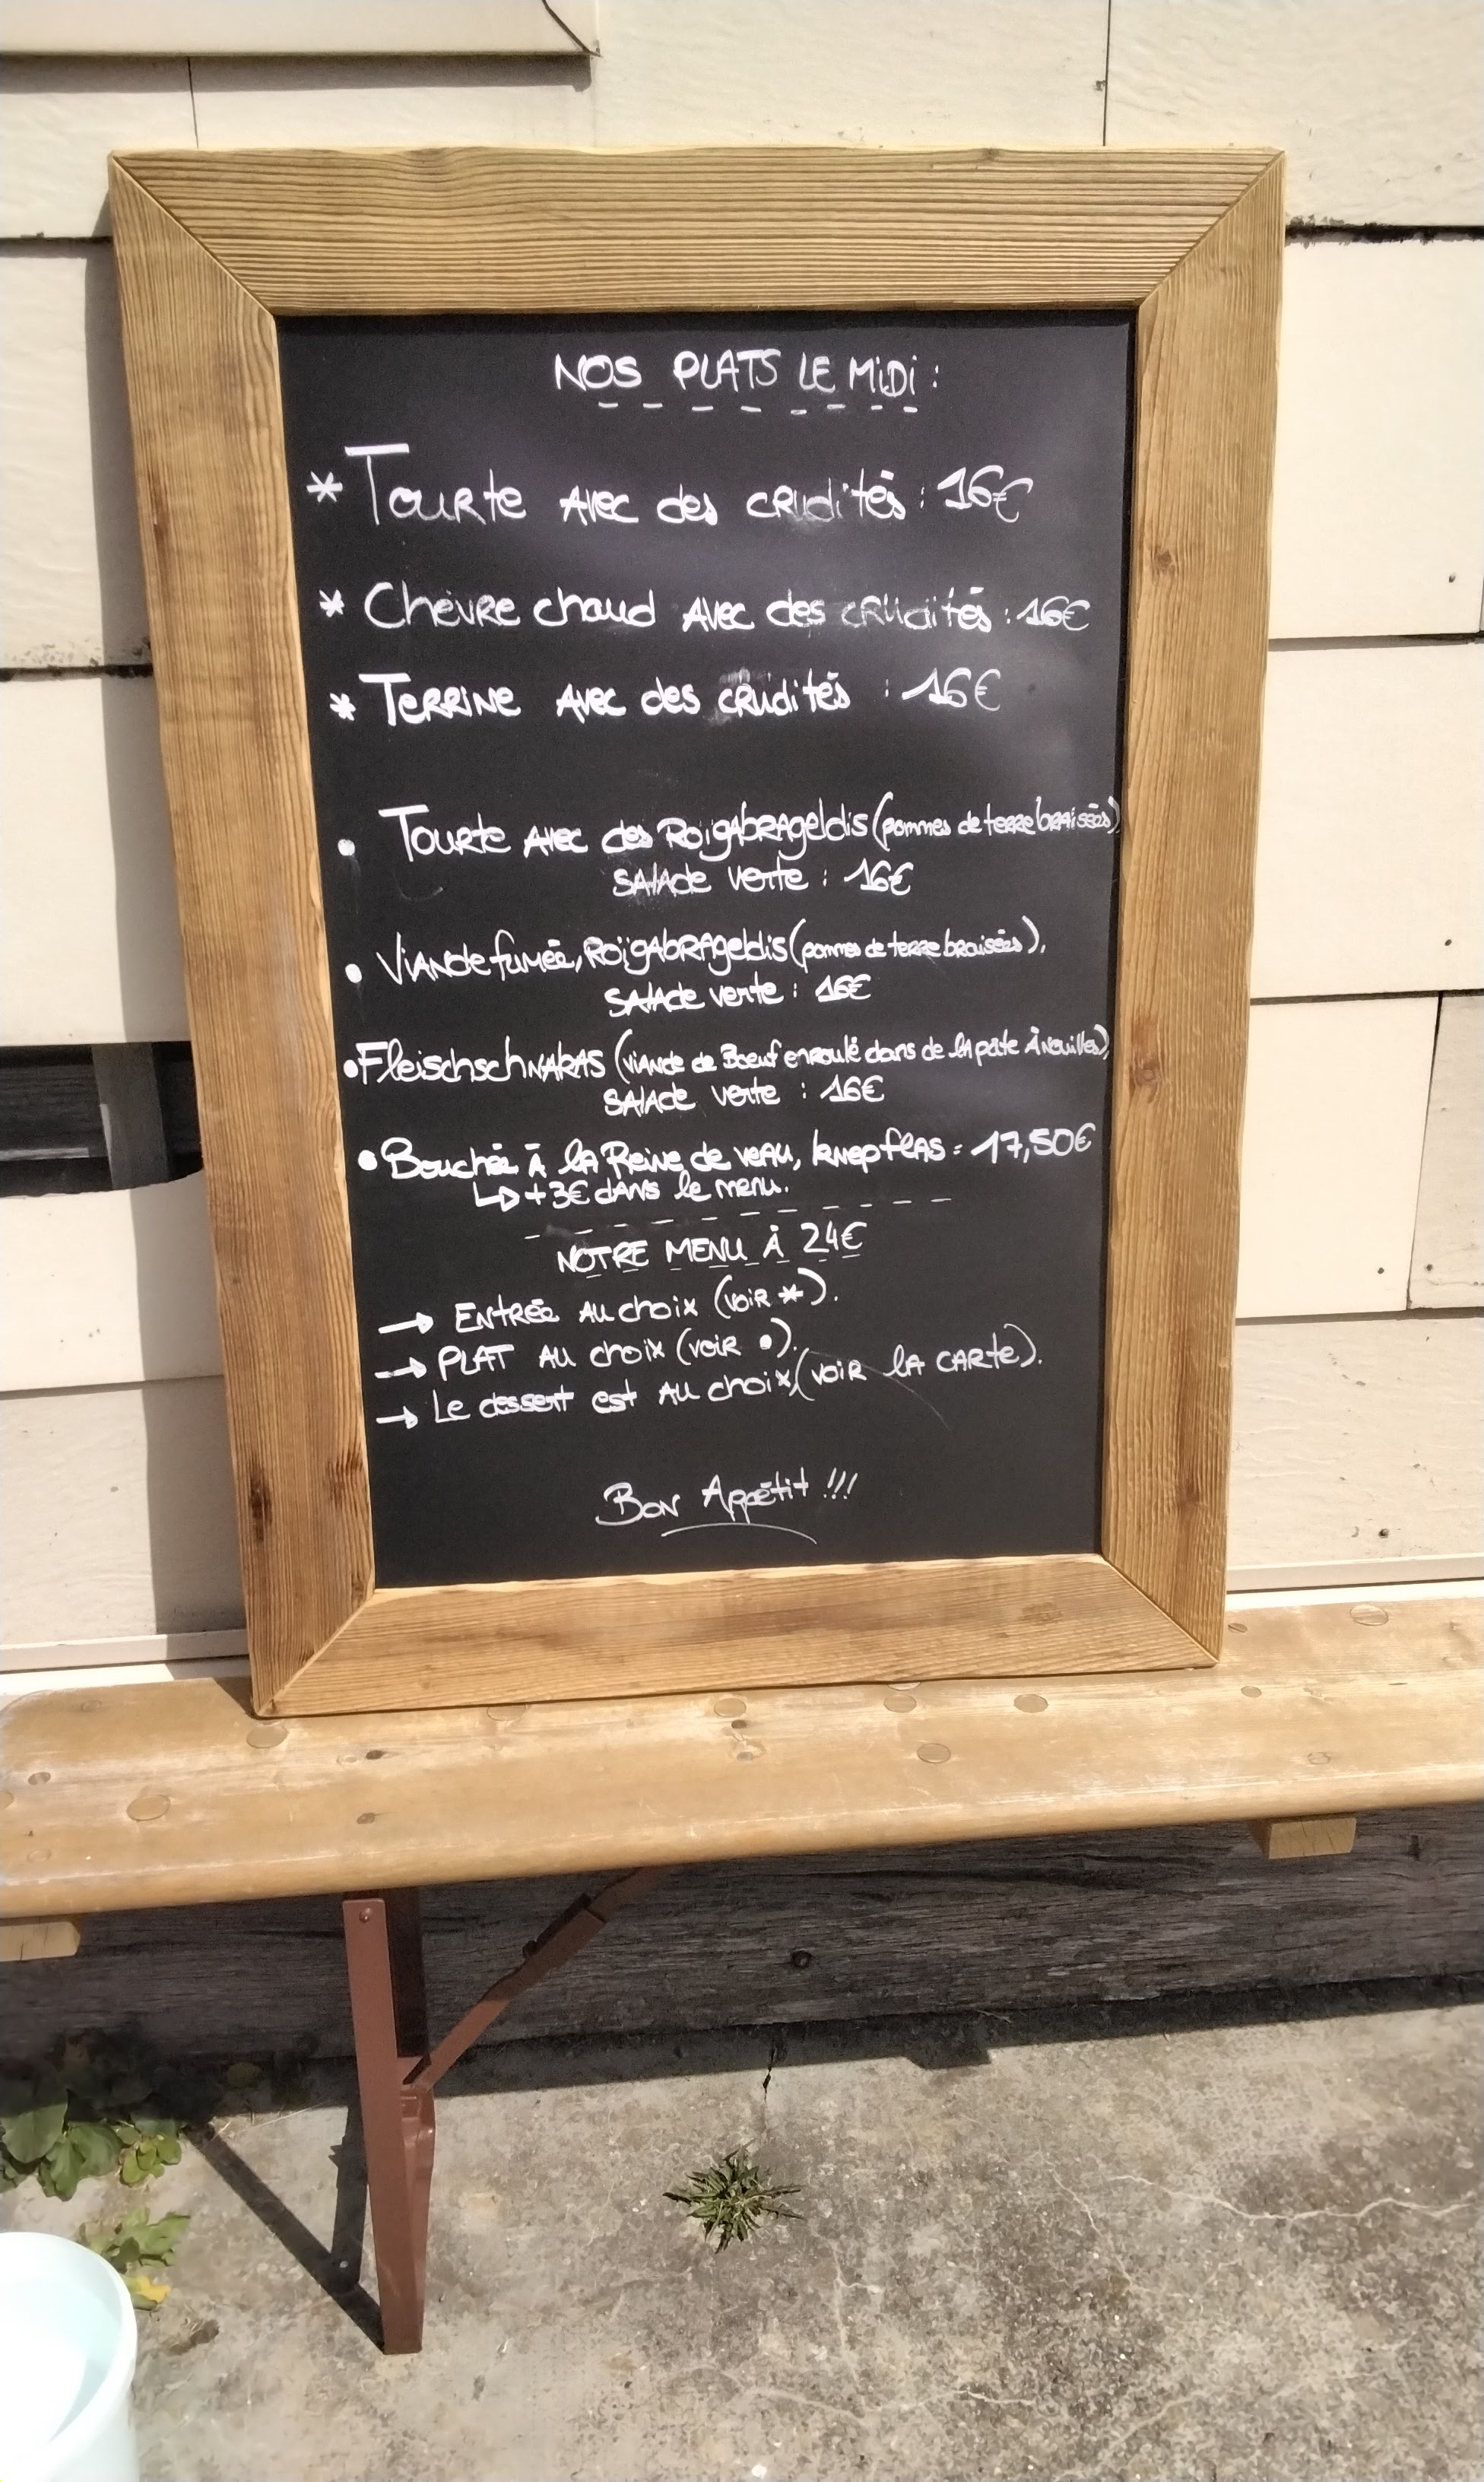 NOS PLATS LE MIDI :
* Tourte avec des crudités : 16€
* Chèvre chaud avec des crudités : 16€
* Terrine avec des crudités : 16€
• Tourte avec des Roïgabrageldis (pommes de terre braisées)
salade verte : 16€
• Viande fumée, Roïgabrageldis (pommes de terre braisées),
salade verte : 16€
• Fleischschnakas (viande de Boeuf enroulé dans de la pâte à nouilles),
salade verte : 16€
• Bouchée à la Reine de veau, knepflas = 17,50€
↳ + 3€ dans le menu.
NOTRE MENU À 24€
→ Entrée au choix (voir *).
→ PLAT au choix (voir •).
→ Le dessert est au choix (voir la carte).
Bon Appétit !!!